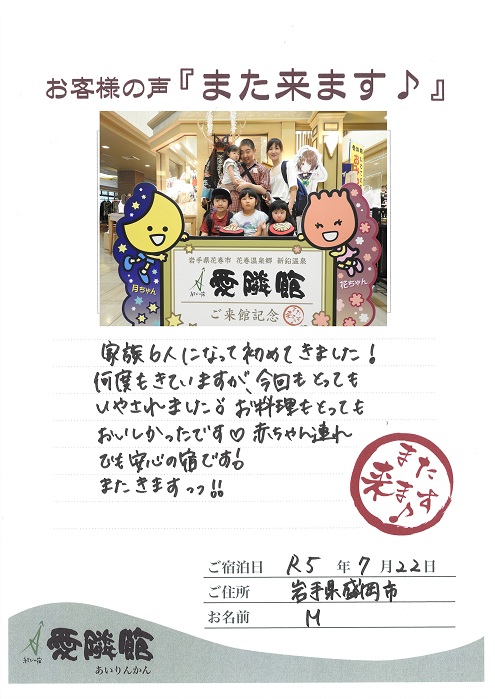 お客様の声『また来ます♪』
岩手県花巻市 花巻温泉郷 新鉛温泉
愛隣館
ご来館記念
月ちゃん
花ちゃん
家族6人になって初めてきました!
何度もきていますが、今回もとっても
いやされました♪ お料理もとっても
おいしかったです♡ 赤ちゃん連れ
でも安心の宿です!
またきますっっ!!
また
来ます♪
ご宿泊日 R5 年 7 月 22 日
ご住所 岩手県盛岡市
お名前 M
愛隣館
あいりんかん